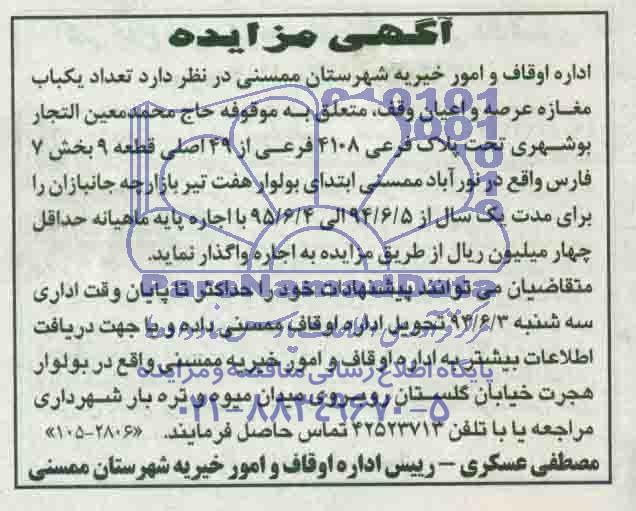 آگهی مزایده
اداره اوقاف و امور خیریه شهرستان ممسنی در نظر دارد تعداد یکباب
مغازه عرصه و اعیان وقف، متعلق به موقوفه حاج محمدمعین التجار
بوشهری تحت پلاک فرعی ۴۱۰۸ فرعی از ۴۹ اصلی قطعه ۹ بخش ۷
فارس واقع در نورآباد ممسنی ابتدای بولوار هفت تیر بازارچه جانبازان را
برای مدت یک سال از ۹۴/۶/۵ الی ۹۵/۶/۴ با اجاره پایه ماهیانه حداقل
چهار میلیون ریال از طریق مزایده به اجاره واگذار نماید.
متقاضیان می توانند پیشنهادات خود را حداکثر تا پایان وقت اداری
سه شنبه ۹۴/۶/۳ تحویل اداره اوقاف ممسنی داده و یا جهت دریافت
اطلاعات بیشتر به اداره اوقاف و امور خیریه ممسنی واقع در بولوار
هجرت خیابان گلستان روبروی میدان میوه و تره بار شهرداری
مراجعه یا با تلفن ۴۲۵۲۳۷۱۳ تماس حاصل فرمایند. «۲۸۰۶-۱۰۵»
مصطفی عسکری – رییس اداره اوقاف و امور خیریه شهرستان ممسنی
ParsNamadData
پایگاه اطلاع رسانی مناقصه و مزایده
۰۲۱-۸۸۳۴۹۶۷۰-۵